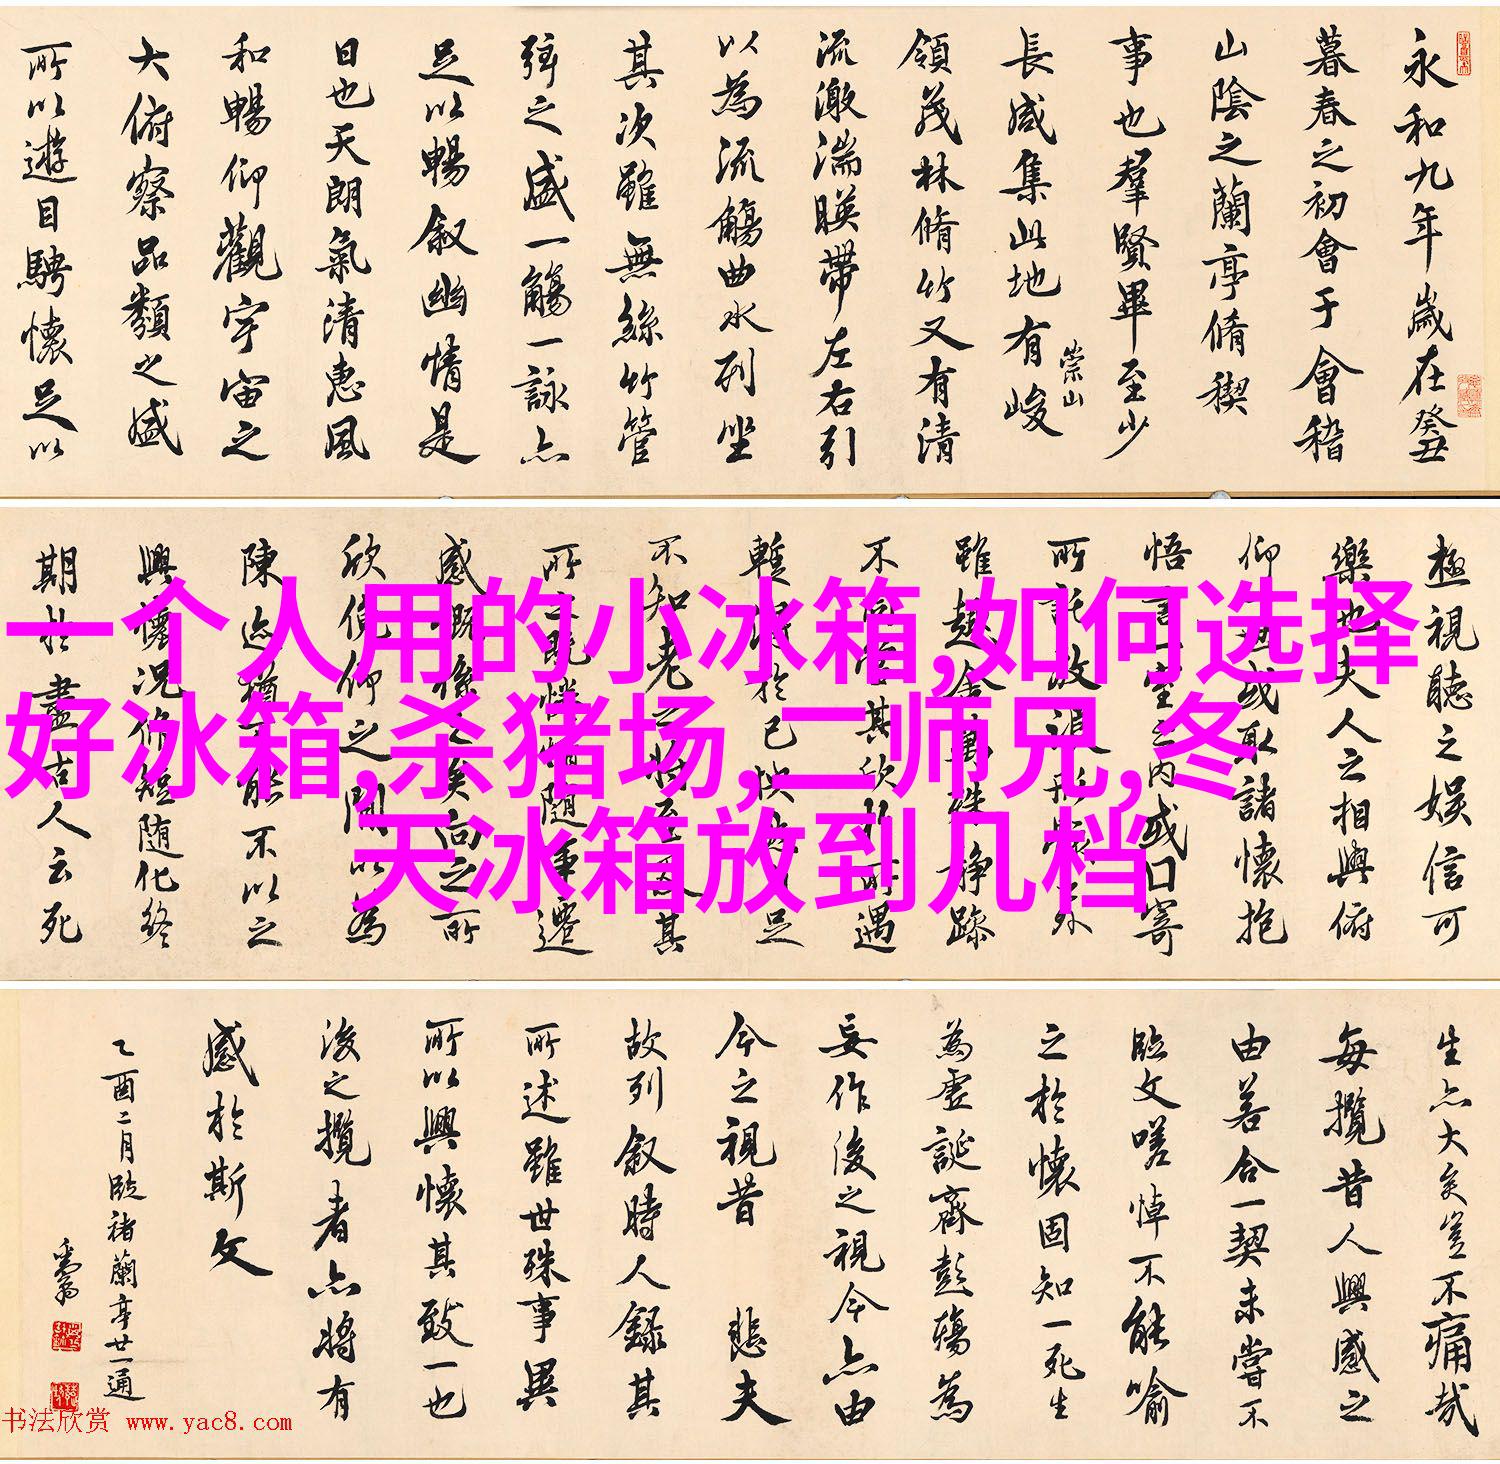 永和九年歲在癸丑
暮春之初會于會稽
山陰之蘭亭脩稧
事也羣賢畢至少
長咸集此地有峻
崇山
領茂林脩竹又有清
流激湍暎帶左右引
以為流觴曲水列坐
其次雖無絲竹管
弦之盛一觴一詠亦
足以暢叙幽情是
日也天朗氣清惠風
和暢仰觀宇宙之
大俯察品類之盛
所以遊目騁懷足以
極視聽之娛信可
樂也夫人之相與俯
仰一世或取諸懷抱
悟言一室之內或因寄
所託放浪形骸之外
雖趣舍萬殊靜躁
不同當其欣於所遇
暫得於己快然自足
不知老之將至及其
所之既惓情隨事遷
感慨係之矣向之所
欣俛仰之閒以為
陳迹猶不能不以之
興懷況脩短隨化終
期於盡古人云死
一个人用的小冰箱,如何选择
好冰箱,杀猪场,二师兄,冬
天冰箱放到几档
生亦大矣豈不痛哉
每攬昔人興感之
由若合一契未嘗不
臨文嗟悼不能喻
之於懷固知一死生
為虛誕齊彭殤為
妄作後之視今亦由
今之視昔 悲夫
故列叙時人錄其
所述雖世殊事異
所以興懷其致一也
後之攬者亦將有
感於斯文
乙酉二月臨褚蘭亭廿一通
书法欣赏 www.yac8.com